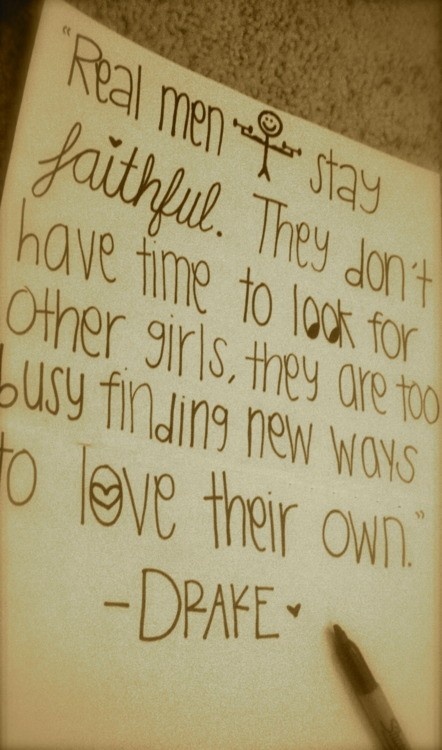 "Real men stay
faithful. They don't
have time to look for
other girls, they are too
busy finding new ways
to love their own."
-DRAKE